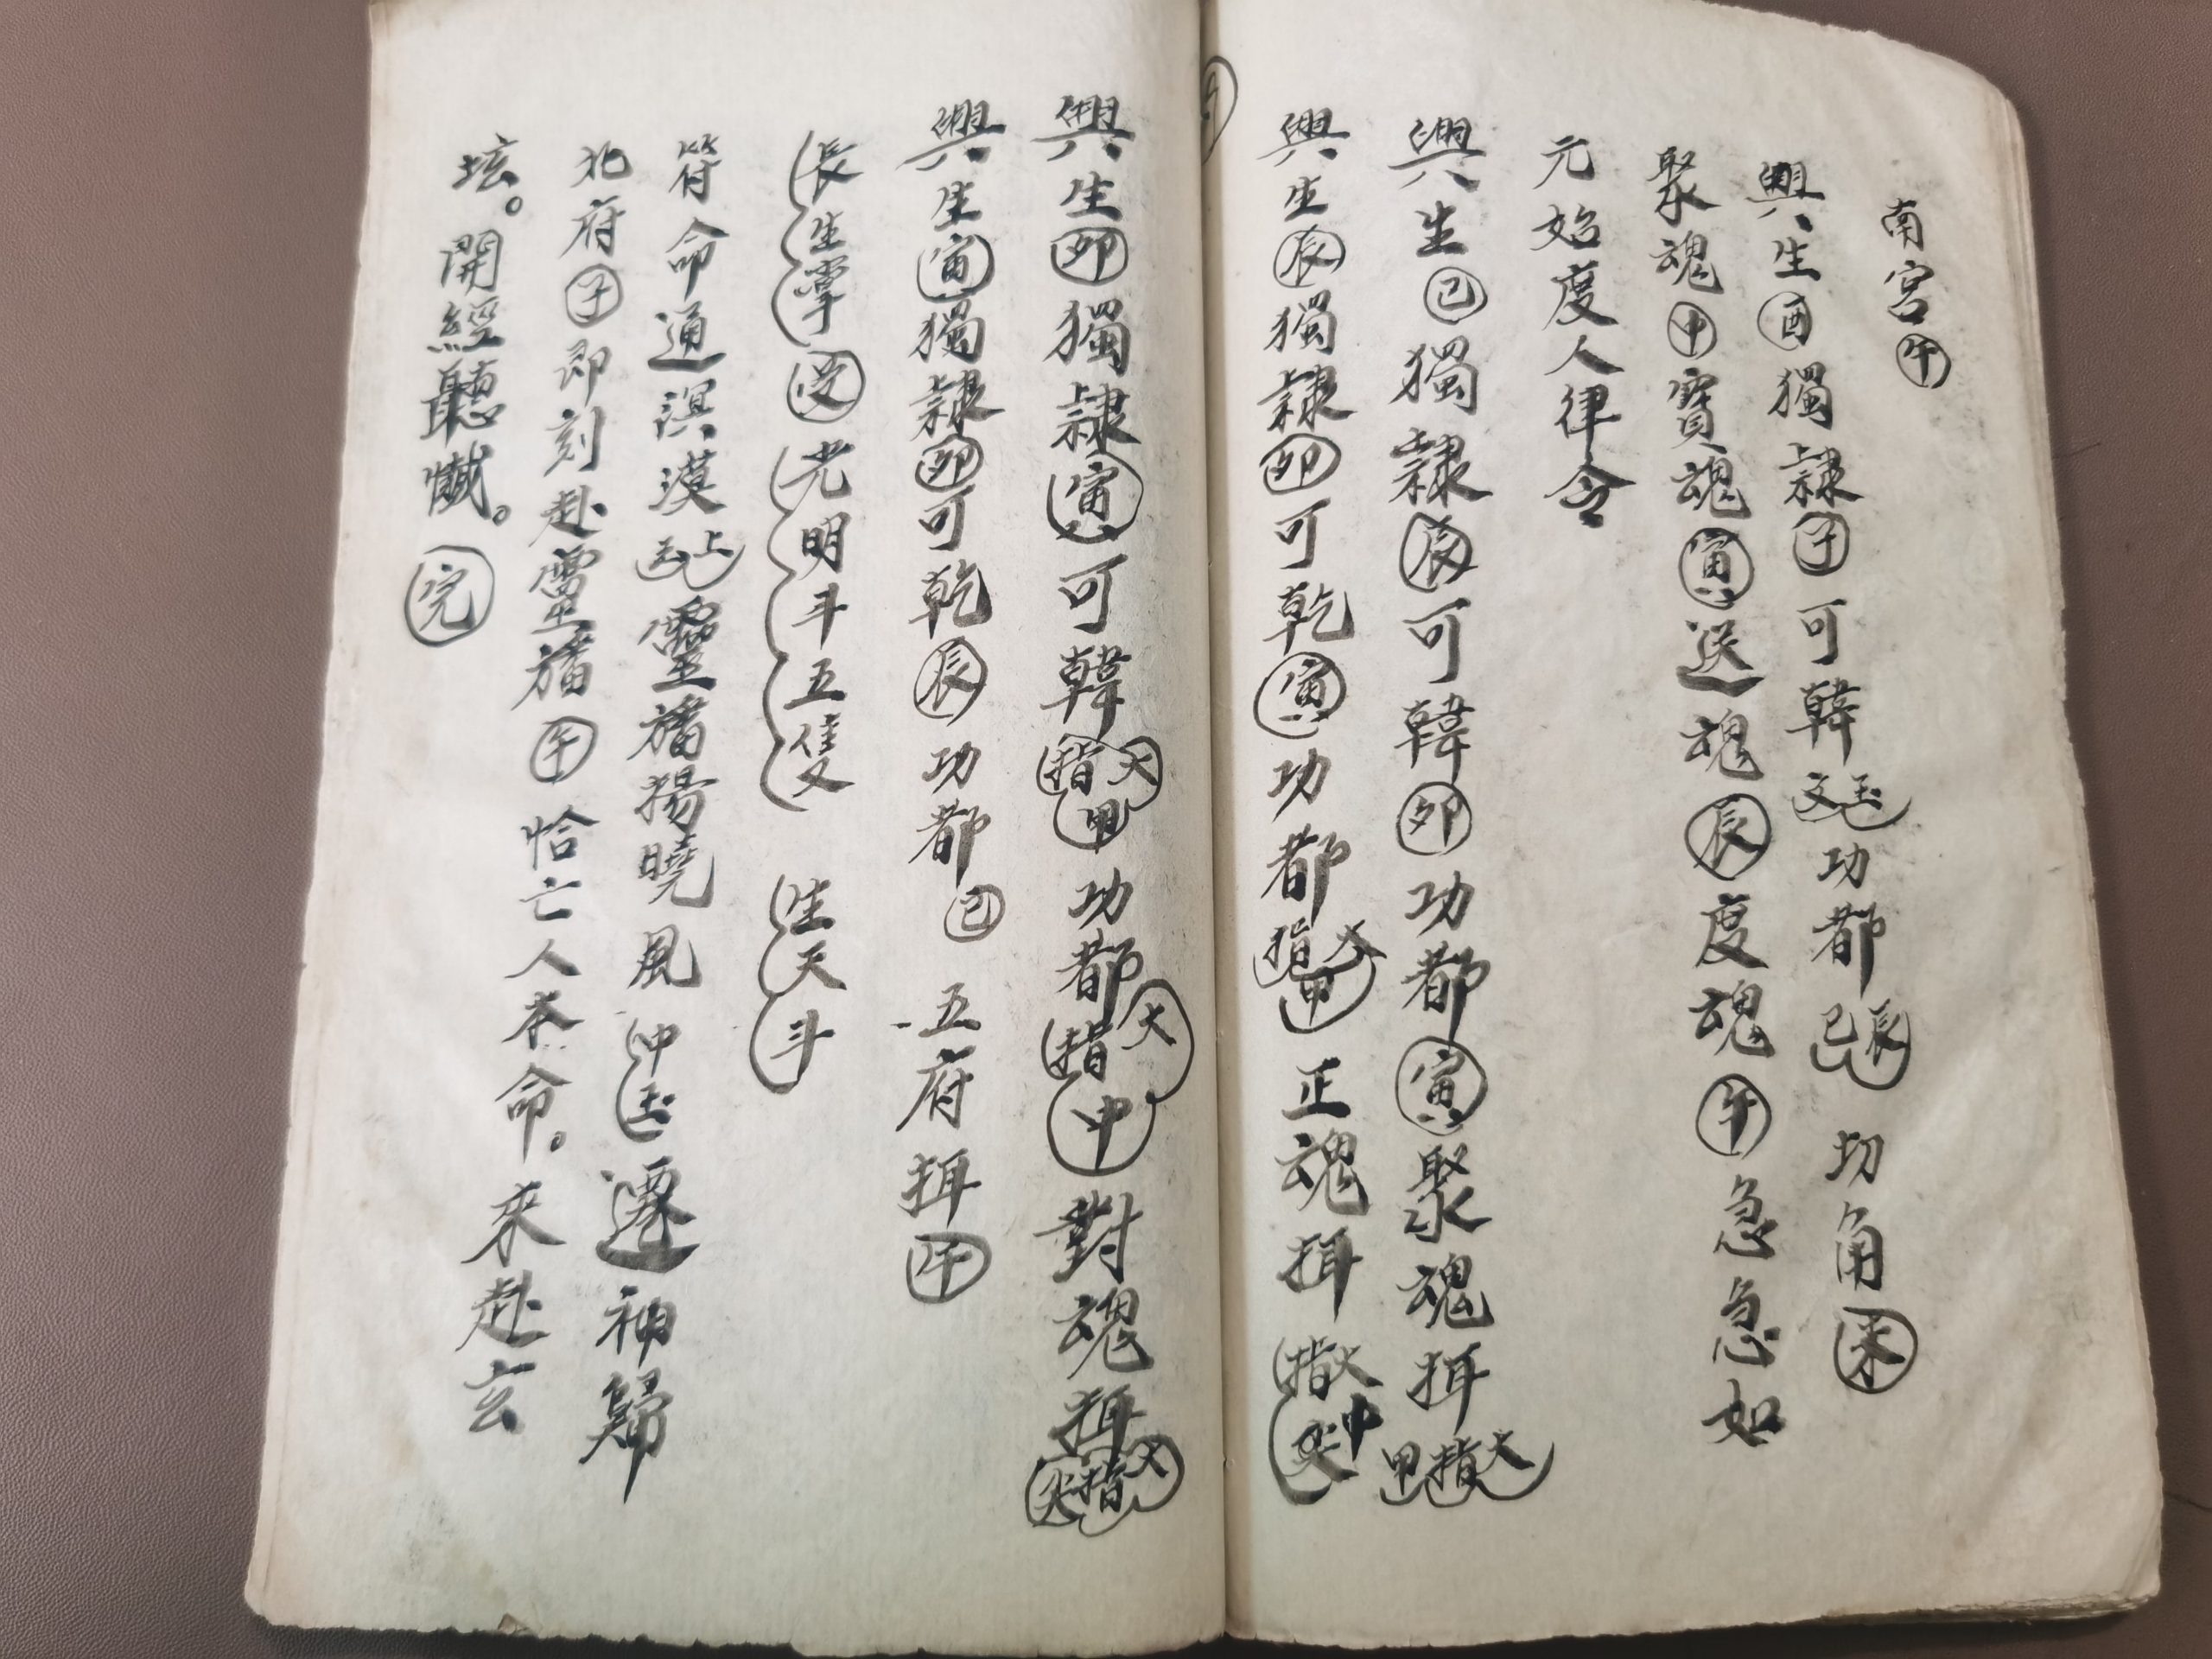 南宮午
興生酉獨隸子可韓玉文功都辰巳切角
聚魂申寶魂寅送魂辰度魂午急急如
元始度人律令
興生巳獨隸辰可韓卯功都寅聚魂挕大指甲
興生辰獨隸卯可乾寅功都大指甲正魂挕大指中
興生卯獨隸寅可韓大指甲功都大指中對魂挕大指尖
興生寅獨隸卯可乾辰功都巳五府挕午
長生掌受光明斗五隻生天斗
符命通溟漠上玉靈旛揚曉風中玉遷神歸
北府子即刻赴靈旛午恰亡人本命。來赴玄
坛。開經聽懺。完